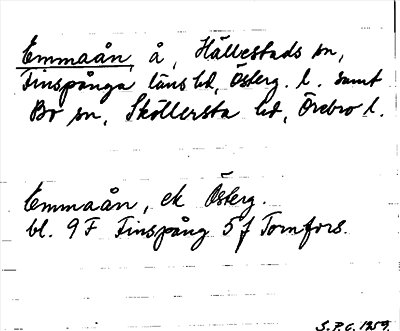 Emmaån, å, Hällestads sn,
Finspånga läns hd, Österg. l. samt
Bo sn, Sköllersta hd, Örebro l.
Emmaån, ek Österg.
bl. 9F Finspång 5f Tomfors.
S.P.C. 1959.